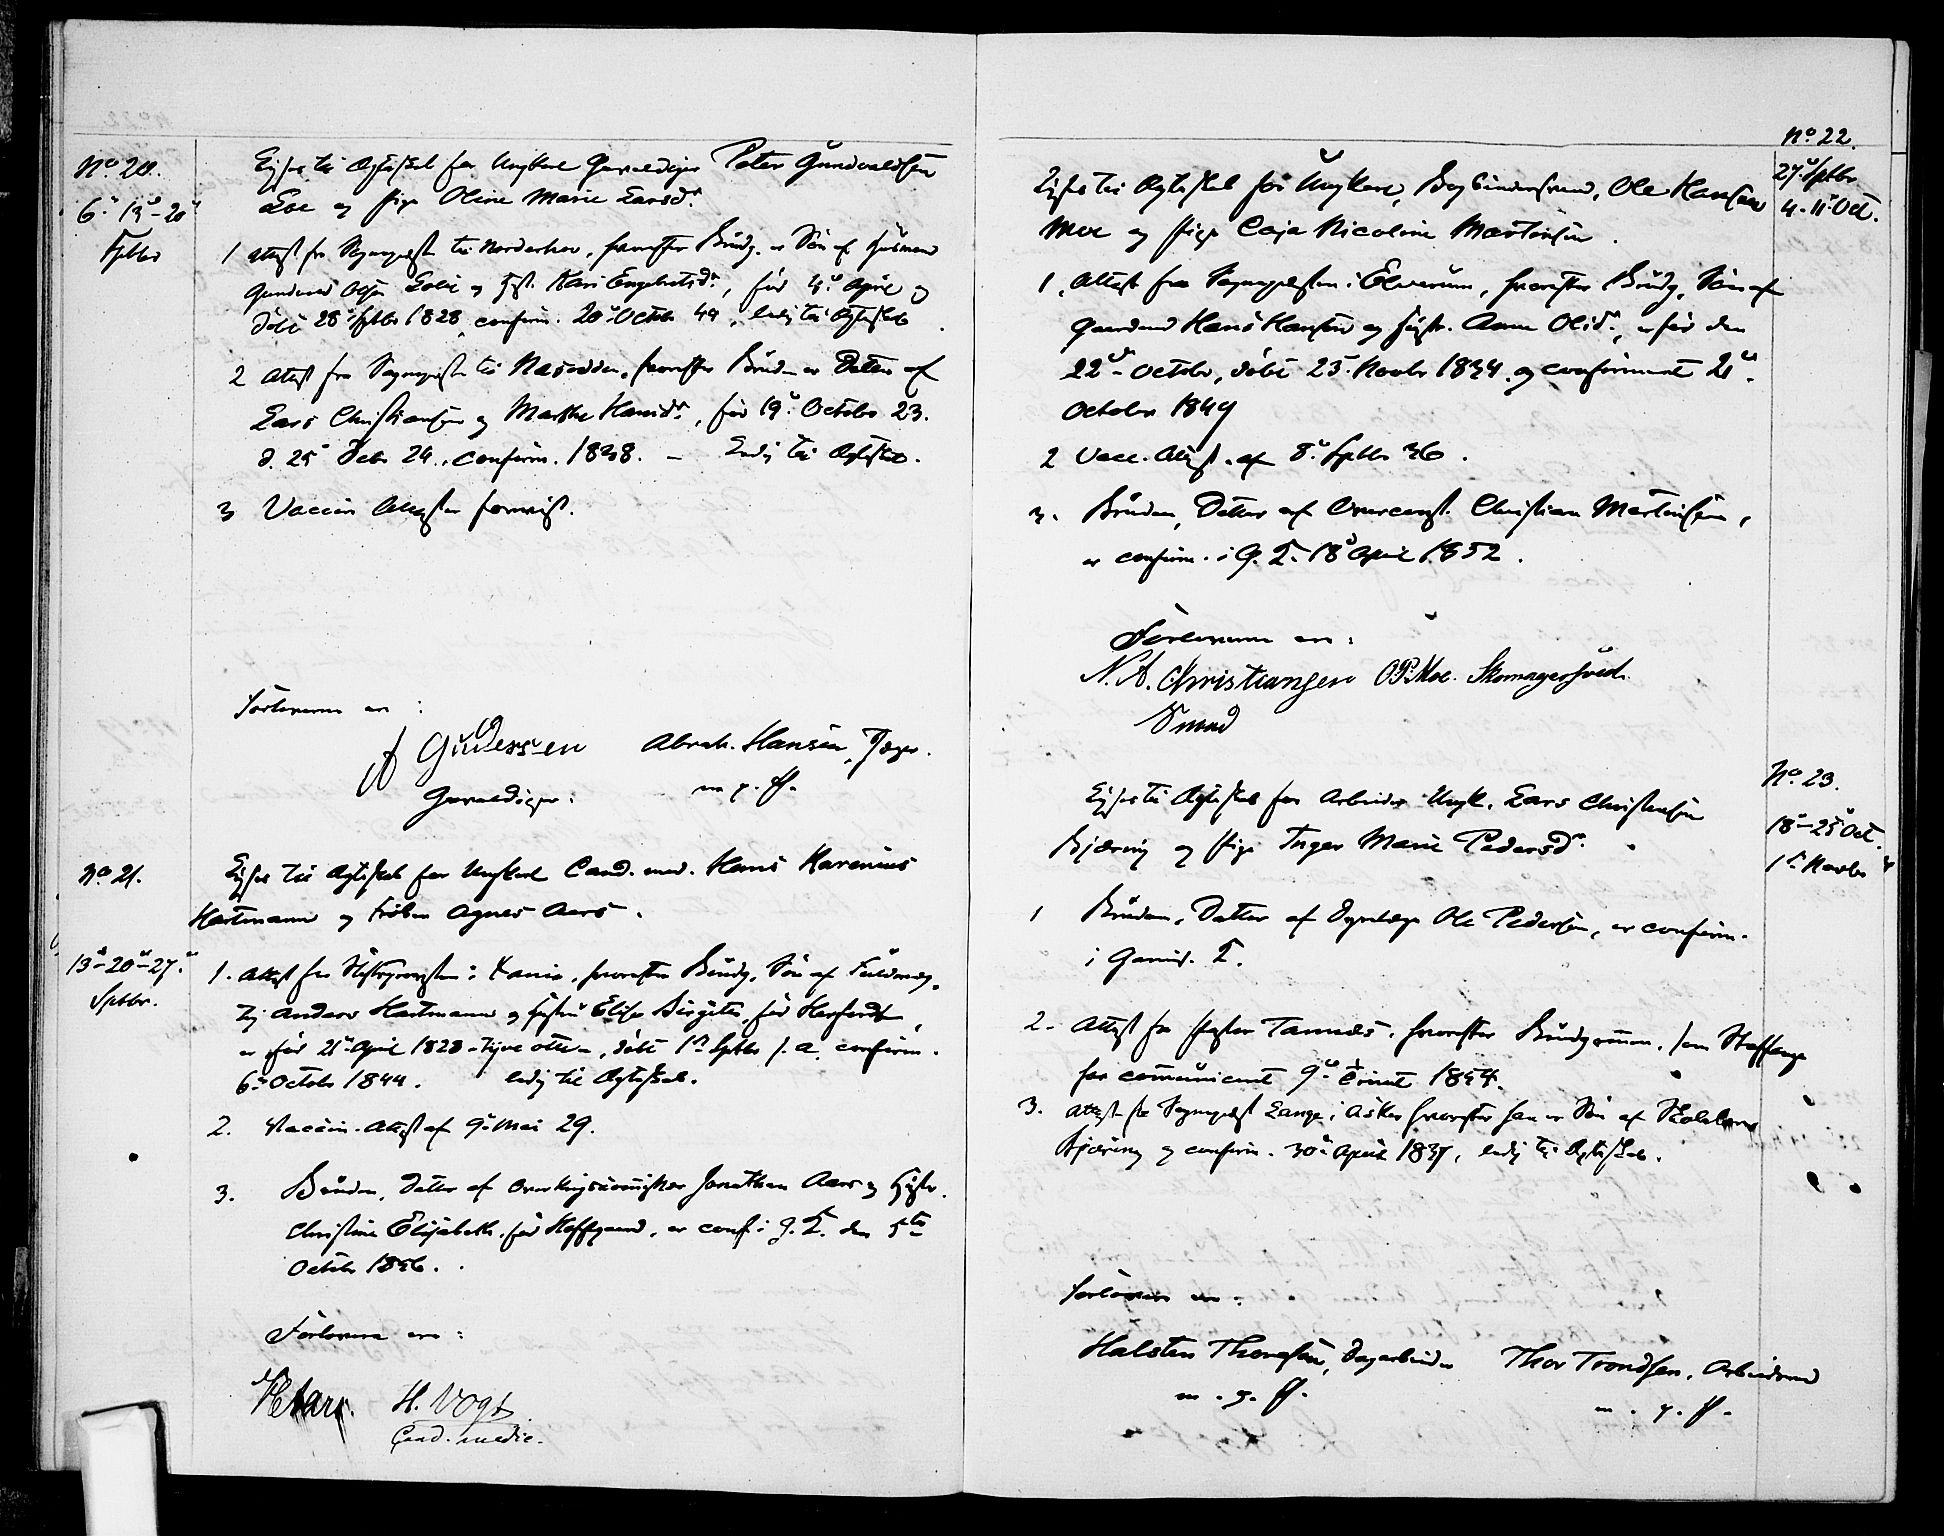 No 20.
6te 13de - 20de
Sptbr
Lyses til Ægteskab for Ungkarl Garveldsgr Peter Gundvaldsen
Loe og Pige Oline Marie Larsd.
1 Attest fra Sognepræst til Norderhov, hvorefter Brudg. er Søn af Huusmand
Gundvald Olsen Loeie og Hst. Kari Engebretsd., fød 4de April og
døbt 28de Sptbr 1828, confirm. 20de Octbr 44, ledig til Ægteskab.
2 Attest fra Sognepræst til Næsodden, hvorefter Bruden er Datter af
Lars Christiansen og Marthe Hansd., fød 19de Octobr 23.
d. 25 Decbr 24., confirm. 1838. - Ledig til Ægteskab.
3 Vaccin Attester forevist.
Forlovere ere :
A Gulessen Abrah. Hansen,
m. p. P.
No 21.
13de - 20de - 27de
Sptbr.
Lyses til Ægteskab for Ungkarl Cand. med. Hans
Hartmann og Frøken Agnes Aars.
1. Attest fra Stiftsprovsten i Xania, hvorefter Brudg. Søn af Fuldmæg-
tig Anders Hartmann og Hustru Elise Birgitte, fød
er fød 21de April 1828 - tyve otte -, døbt 1ste Sptbr s. a. confirm.
6te Octobr 1844. ledig til Ægteskab.
2. Vaccin. Attest af 9de Mai 29.
3. Bruden, Datter af Overkrigscommissær Jonathan Aars og Hustr.
Christine Elisabeth, fød Hoffgaard, er conf. i G. T. den 5te
Octobr 1856.
Forlovere ere :
Aars. H. Vogt
Cand. medic.
No 22.
27de Sptbr
4. 11te Oct.
Lyses til Ægteskab for Ungkarl, Bogbindersvend, Ole Hansen
Moe og Pige Caja Nicoline Martinsen.
1. Attest fra Sognepræsten i Elverum, hvorefter Brudg. Søn af
Gaardmd Hans Hansen og Hustr. Anne Olsd., er fød den
22de October, døbt 23 Novbr 1834 og confirmeret 21de
October 1849
2 Vacc. Attest. af 8de Sptbr 36.
3. Bruden, Datter af Christian Martinsen,
er confirm. i G. T. 18de April 1852.
Forloverne ere :
N. A. Christiansen O P Moe. Skomagersvend.
Smed
No. 23.
18de - 25de Oct.
1ste Novbr
Lyses til Ægteskab for Arbeider Ungk. Lars Christensen
Bjæring og Pige Inger Marie Pedersd.
1 Bruden, Datter af Ole Pedersen, er confirm.
i Gamle. T.
2. Attest fra Pastor Tannæs, hvorefter Brudgommen,
har communiceret 9de Trinit 1854.
3. Attest fra Sognepræst Lange i Asker hvorefter han er Søn af Skoleholder
Bjæring og confirm. 30de April 1837, ledig til Ægteskab.
Forlovere ere :
Halsten Thoresen, Dagarbeider Thor Trondsen, Arbeidsmd
m. p. P. m. p. P.